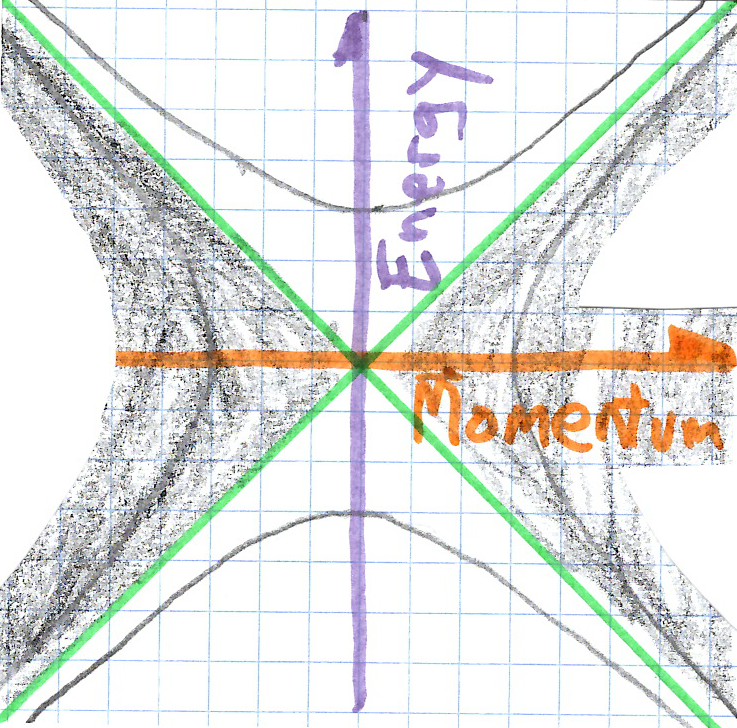 Energy
Momentum